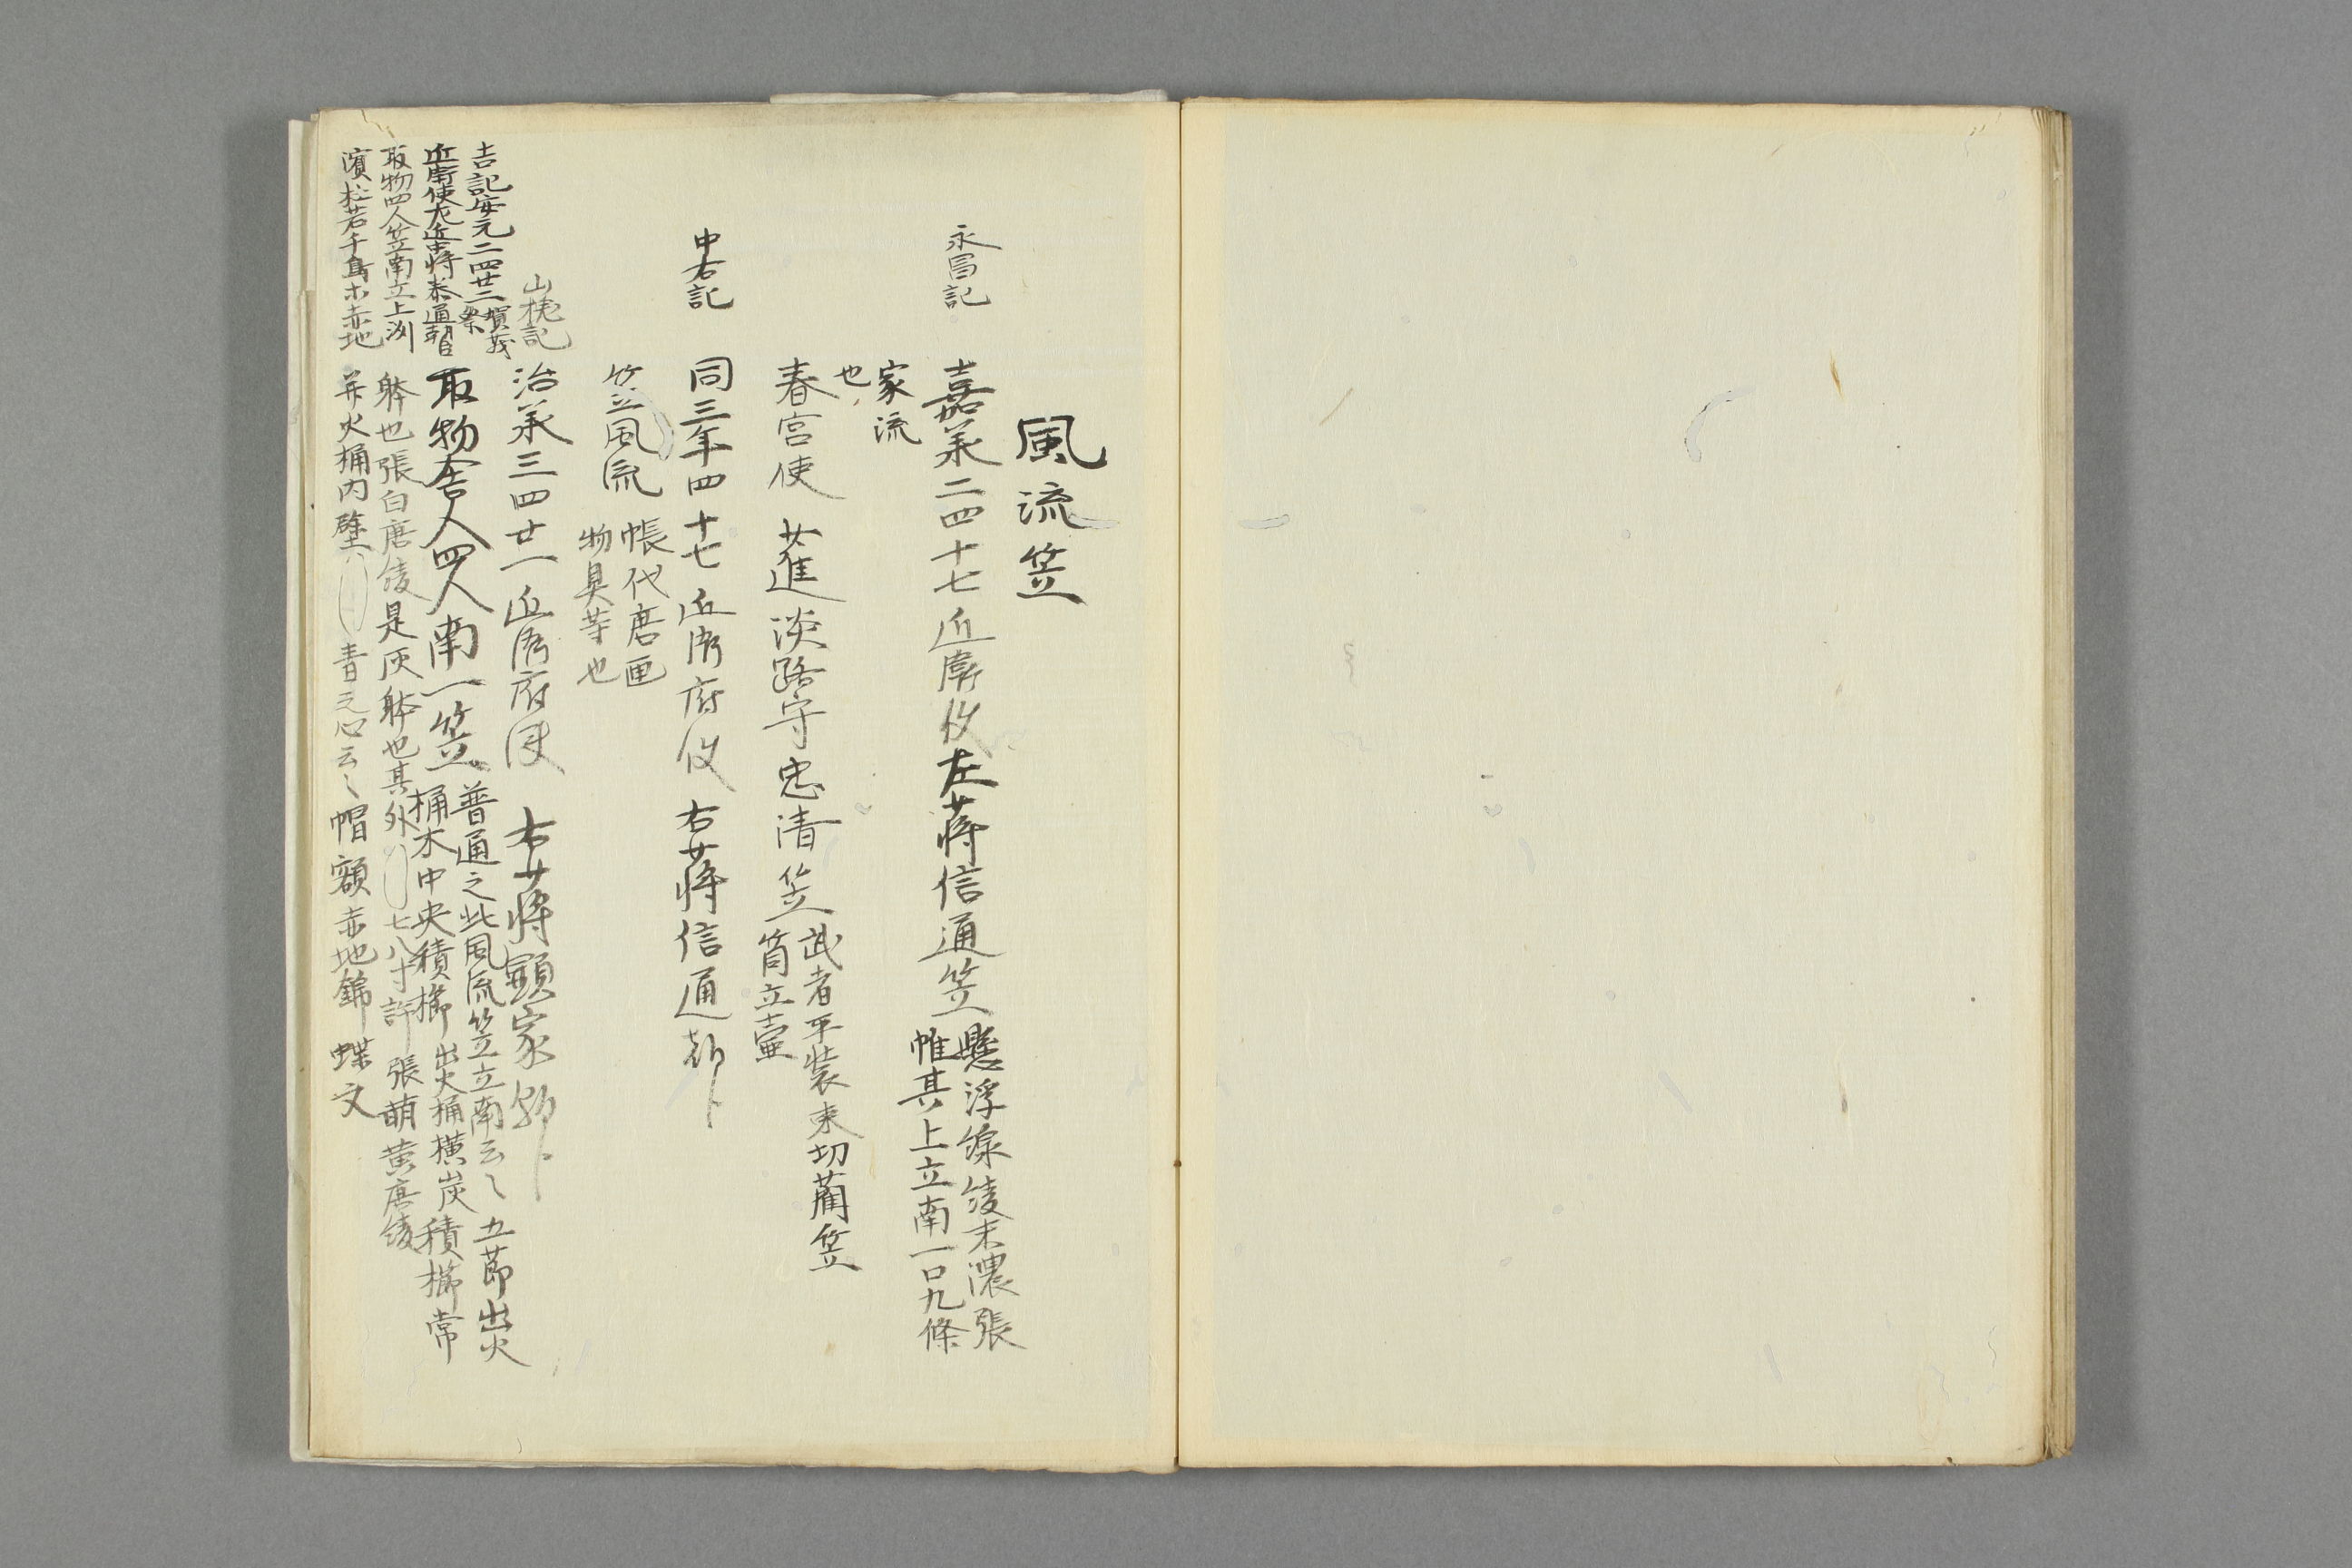 風流笠
永昌記
嘉承二四十七近衛使左少将信通笠
懸浮線綾末濃張
帷其上立南一口九條
家流
也
春宮使 少進淡路守忠清笠
武者平装束切藺笠
筒立壷
中右記
同三年四十七近衛府使 右少将信通朝卜
笠風流
帳代唐匣
物具等也
山槐記
治承三四廿一近衛府使 右少将顕家朝卜
取物舎人四人南一笠
普通之此風流笠立南云々 五節出火
桶木中央積櫛 出火桶横炭積櫛常
躰也張白唐綾是灰躰也其外 七八寸許 張萌黄唐綾
并火桶内壁 青之心云々 帽額赤地錦 蝶文
吉記安元二四廿二賀茂祭
近衛使左近中将泰通朝臣
取物四人笠南立上洲
濱松若千鳥赤地